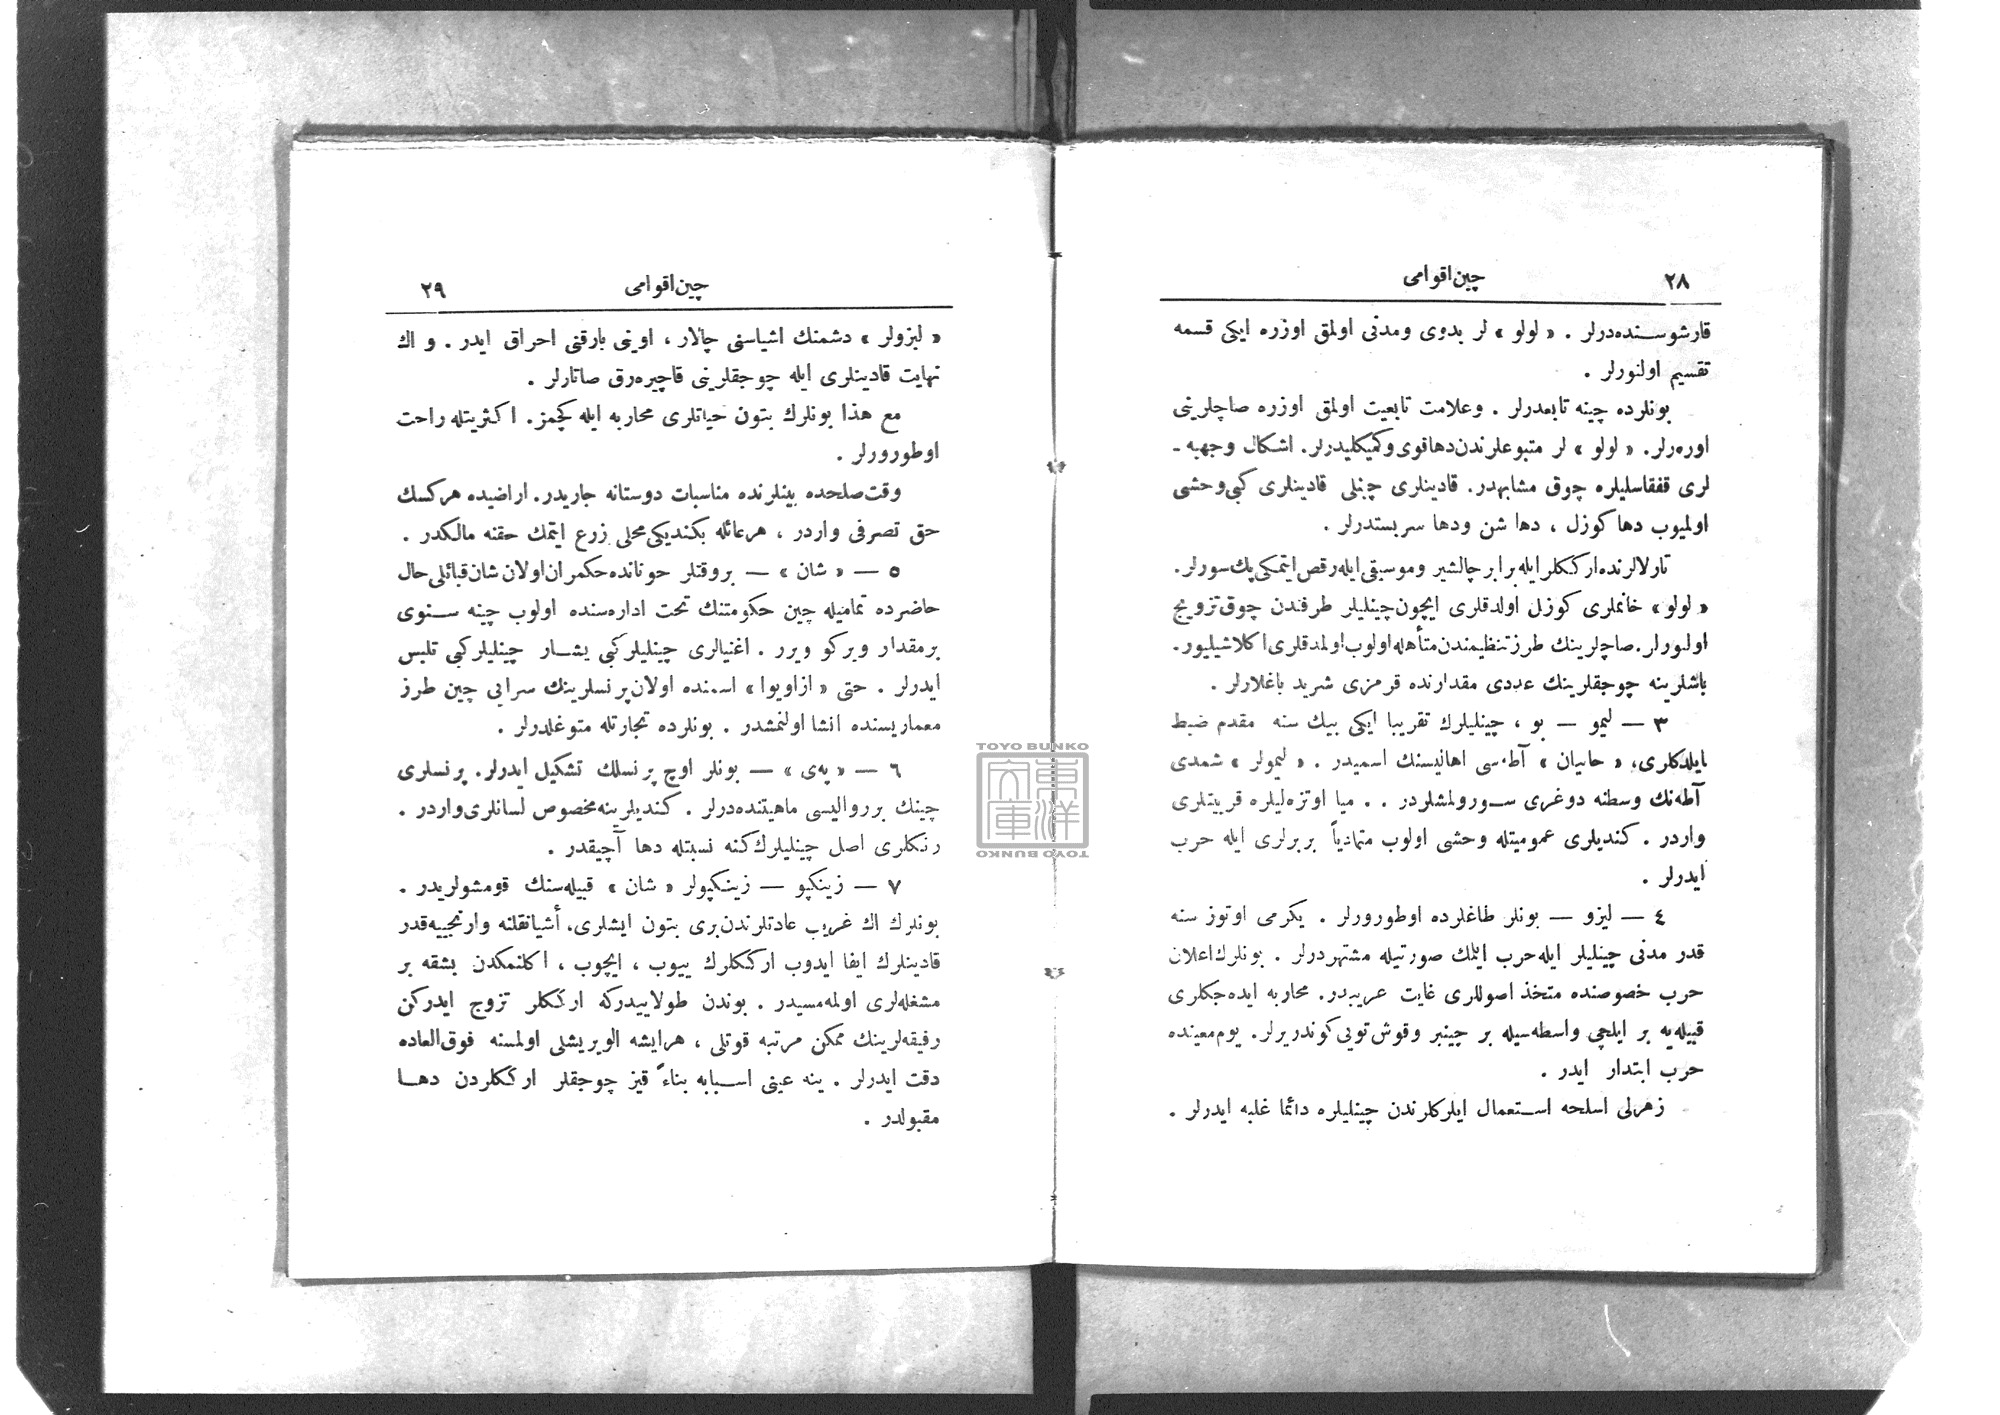 ٢٨
چین اقوامی
قارشوسنده‌درلر . « لولو » لر بدوی ومدنی اولمق اوزره ایکی قسمه
تقسیم اولنورلر .
بونلرده چینه تابعدرلر . وعلامت تابعیت اولمق اوزره صاچلرینی
اوره‌رلر. « لولو » لر متبوعلرندن دها قوی وکمیکلیدرلر. اشکال وجهیه -
لری قفقاسلیلره چوق مشابهدر. قادینلری چینلی قادینلری کبی وحشی
اولمیوب دها کوزل ، دها شن ودها سربستدرلر .
تارلالرنده ارککلر ایله برابر چالشیر وموسیقی ایله رقص ایتمکی پك سورلر.
« لولو » خانملری کوزل اولدقلری ایچون چینلیلر طرفندن چوق تزویج
اولنورلر. صاچلرینك طرز تنظیمندن متأهله اولوب اولمدقلری اکلاشیلیور.
باشلرینه چوجقلرینك عددی مقدارنده قرمزی شرید باغلارلر .
٣ — لیمو — بو ، چینلیلرك تقریبا ایکی بیك سنه مقدم ضبط
ایلدکلری، « حاینان » آطه‌سی اهالیسنك اسمیدر . « لیمولر » شمدی
آطه‌نك وسطنه دوغری سورولمشلردر . . میا اوتزه‌لیلره قربیتلری
واردر . کندیلری عمومیتله وحشی اولوب متمادیاً بربرلری ایله حرب
ایدرلر .
٤ — لیزو — بونلر طاغلرده اوطورورلر . یکرمی اوتوز سنه
قدر مدنی چینلیلر ایله حرب ایتمك صورتیله مشتهردرلر . بونلرك اعلان
حرب خصوصنده متخذ اصوللری غایت غریبدر. محاربه ایده‌جکلری
قبیله‌یه بر ایلچی واسطه‌سیله بر چینبر وقوش تویی کوندریرلر. یوم معینده
حرب ابتدار ایدر .
زهرلی اسلحه استعمال ایلرکلرندن چینلیلره دائما غلبه ایدرلر .
چین اقوامی
٢٩
« لیزولر » دشمنك اشیاسنی چالار ، اوینی بارقنی احراق ایدر . و اك
نهایت قادینلری ایله چوجقلرینی قاچیره‌رق صاتارلر .
مع هذا بونلرك بتون حیاتلری محاربه ایله کچمز. اکثریتله راحت
اوطورورلر .
وقت صلحده بینلرنده مناسبات دوستانه جاریدر. اراضیده هرکسك
حق تصرفی واردر ، هر عائله بکندیکی محلی زرع ایتمك حقنه مالکدر .
٥ — « شان » — بروقتلر حونانده حکمران اولان شان قبائلی حال
حاضرده تمامیله چین حکومتنك تحت اداره‌سنده اولوب چینه سنوی
برمقدار ویرکو ویرر . اغنیالری چینلیلر کبی یشار چینلیلر کبی تلبس
ایدرلر . حتی « ازاویوا » اسمنده اولان پرنسلرینك سرایی چین طرز
معماریسنده انشا اولنمشدر . بونلرده تجارتله متوغلدرلر .
٦ — « په‌ی » — بونلر اوچ پرنسلك تشکیل ایدرلر. پرنسلری
چینك برر والیسی ماهیتنده‌درلر . کندیلرینه مخصوص لسانلری واردر .
رنکلری اصل چینلیلرك کنه نسبتله دها آچیقدر .
٧ — زینکپو — زینکپولر « شان » قبیله‌سنك قومشولریدر .
بونلرك اك غریب عادتلرندن بری بتون ایشلری، أشیا نقلنه وارنجییه قدر
قادینلرك ایفا ایدوب ارککلرك ییوب ، ایچوب ، اکلنمکدن بشقه بر
مشغله‌لری اولمه‌مسیدر . بوندن طولاییدرکه ارککلر تزوج ایدرکن
رفیقه‌لرینك ممکن مرتبه قوتلی ، هر ایشه الویریشلی اولمسنه فوق‌العاده
دقت ایدرلر . ینه عینی اسبابه بناءً قیز چوجقلر ارککلردن دها
مقبولدر .
TOYO BUNKO
東洋文庫
TOYO BUNKO